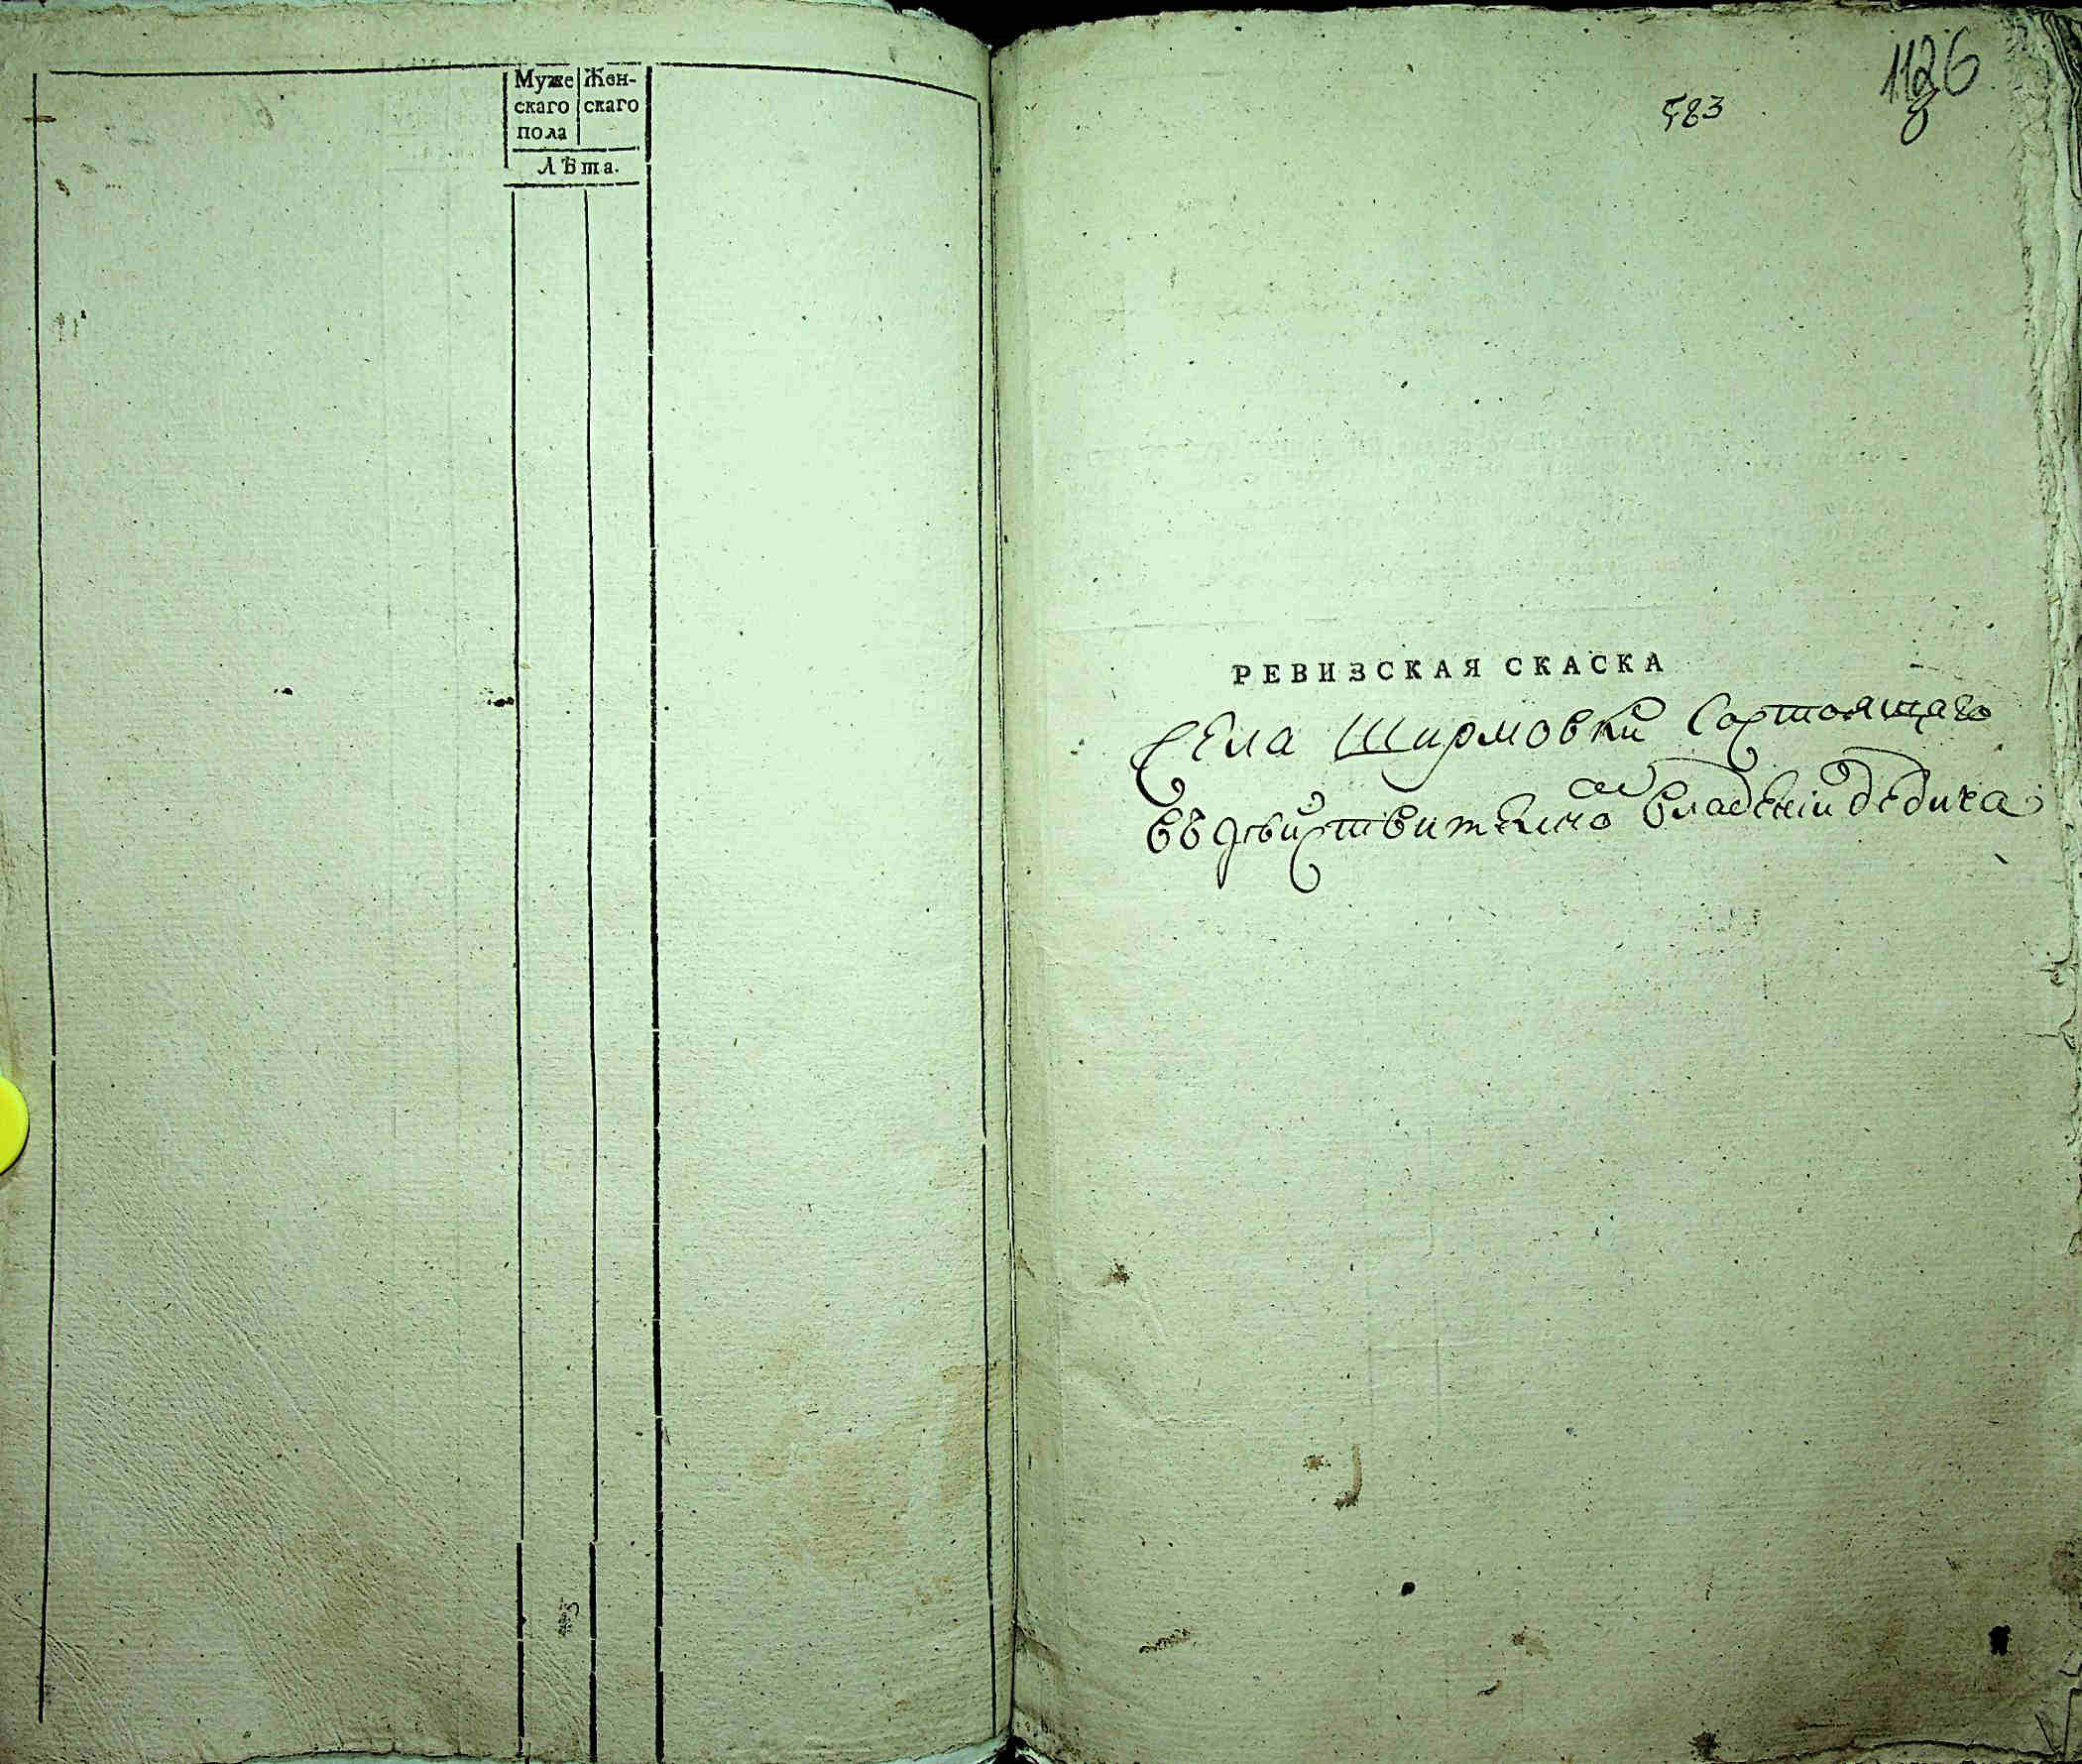 Муже Жен-
скаго скаго
пола
Лѣта.
583
1126
8
РЕВИЗСКАЯ СКАСКА
Села Ширмовки Состоящаго
въ дѣйствителномъ владѣніи дѣдича